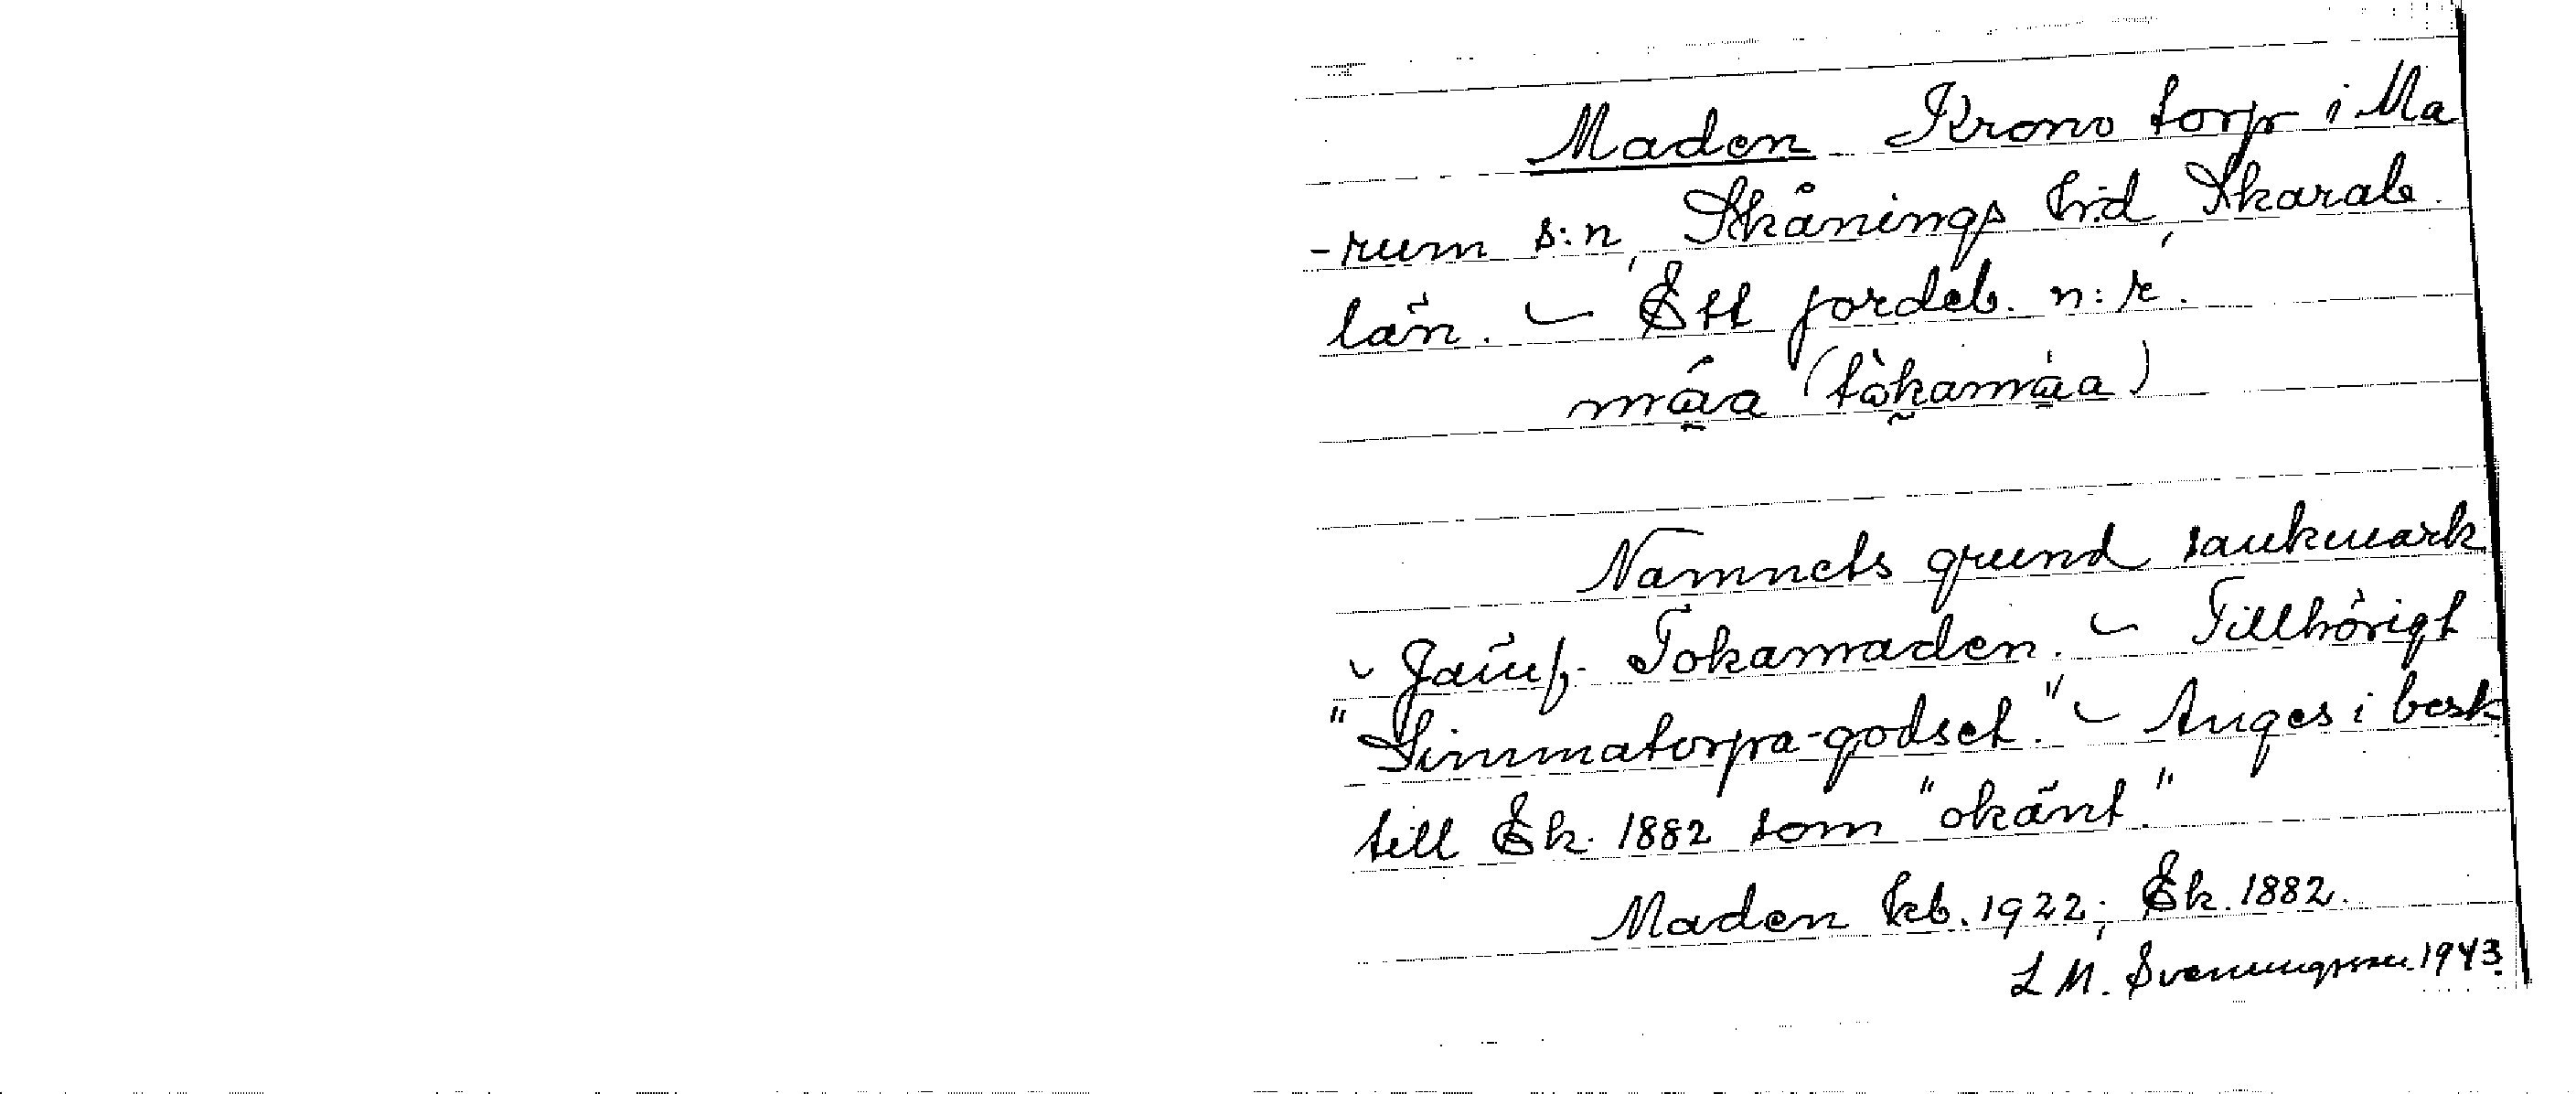 Maden Krono torp i Ma
-rum s:n, Skånings h:d, Skarab.
län. – Ett jordeb. n:r.
måa (tòkamàa)
Namnets grund sankmark
– Jämf. Tokamaden. – Tillhörigt
"Simmatorpa-godset." – Anges i besk.
till Ek. 1882 som "okänt."
Maden kb. 1922; Ek. 1882.
L M. Svenungsson 1943.